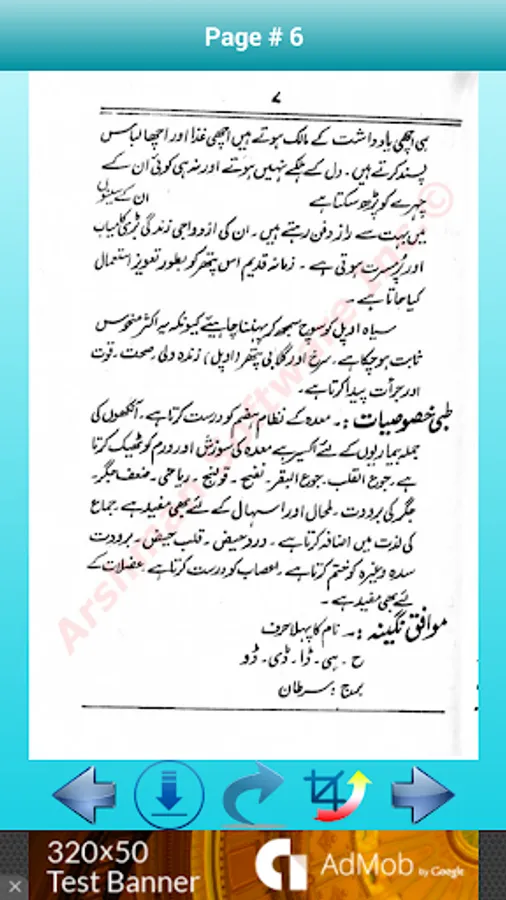 Page # 6
۷
ہی اچھی یادداشت کے مالک ہوتے ہیں اچھی غذا اور اچھا لباس
پسند کرتے ہیں۔ دل کے ہلکے نہیں ہوتے اور نہ ہی کوئی ان کے
چہرے کو پڑھ سکتا ہے ان کے سینوں
میں بہت سے راز دفن رہتے ہیں۔ ان کی ازدواجی زندگی بڑی کامیاب
اور پُرمسرت ہوتی ہے۔ زمانہ قدیم اس پتھر کو بطور تعویز استعمال
کیا جاتا ہے۔
سیاہ اوپل کو سوچ سمجھ کر پہننا چاہیئے کیونکہ یہ اکثر منحوس
ثابت ہو چکا ہے۔ سرخ اور گلابی پتھر (اوپل) زندہ دلی۔ صحت۔ قوت
اور جرأت پیدا کرتا ہے۔
طبی خصوصیات :۔ معدہ کے نظام ہضم کو درست کرتا ہے۔ آنکھوں کی
جملہ بیماریوں کے لئے اکسیر ہے معدہ کی سوزش اور ورم کو ٹھیک کرتا
ہے۔ جوع القلب۔ جوع البقر۔ نفیخ۔ قولنج۔ ریاحی۔ ضعف جگر۔
جگر کی برودت۔ طحال اور اسہال کے لئے بھی مفید ہے۔ جماع
کی لذت میں اضافہ کرتا ہے۔ درد حیض۔ قلب حیض۔ برودت
سدہ وغیرہ کو ختم کرتا ہے۔ اعصاب کو درست کرتا ہے۔ عضلات کے
لئے بھی مفید ہے۔
موافق نگینہ :۔ نام کا پہلا حرف
ح۔ ہی۔ ڈا۔ ڈی۔ ڈو
برج : سرطان
Arshman Software Inc. ©
320×50
Test Banner
AdMob by Google